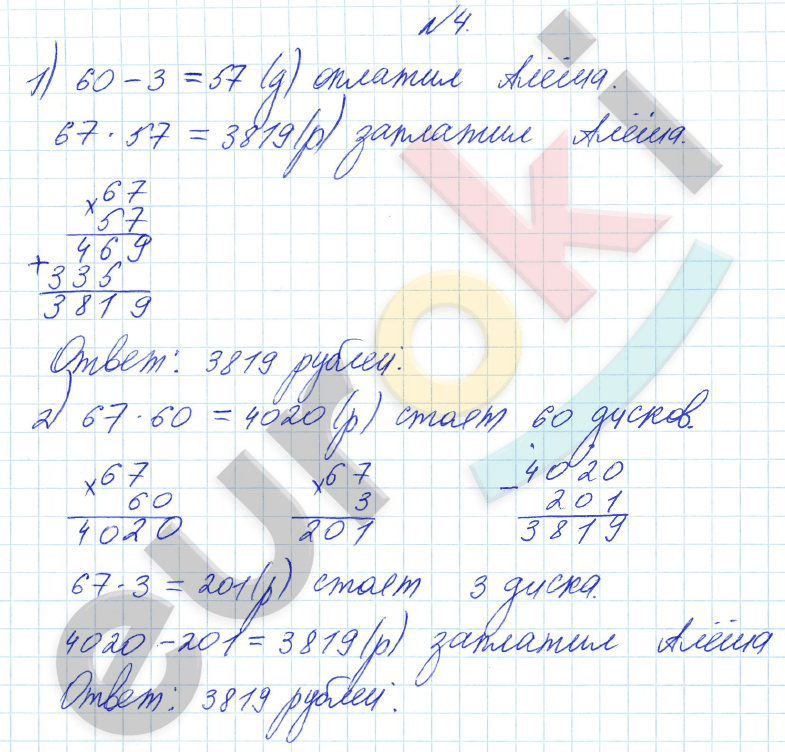 №4.
1) 60 - 3 = 57 (д) оплатил Алёша.
67 · 57 = 3819 (р) заплатил Алёша.
× 67
57
469
+ 335
3819
Ответ: 3819 рублей.
2) 67 · 60 = 4020 (р) стоят 60 дисков.
× 67 × 67 - 4020
60 3 201
4020 201 3819
67 · 3 = 201 (р) стоят 3 диска.
4020 - 201 = 3819 (р) заплатил Алёша
Ответ: 3819 рублей.
euroki